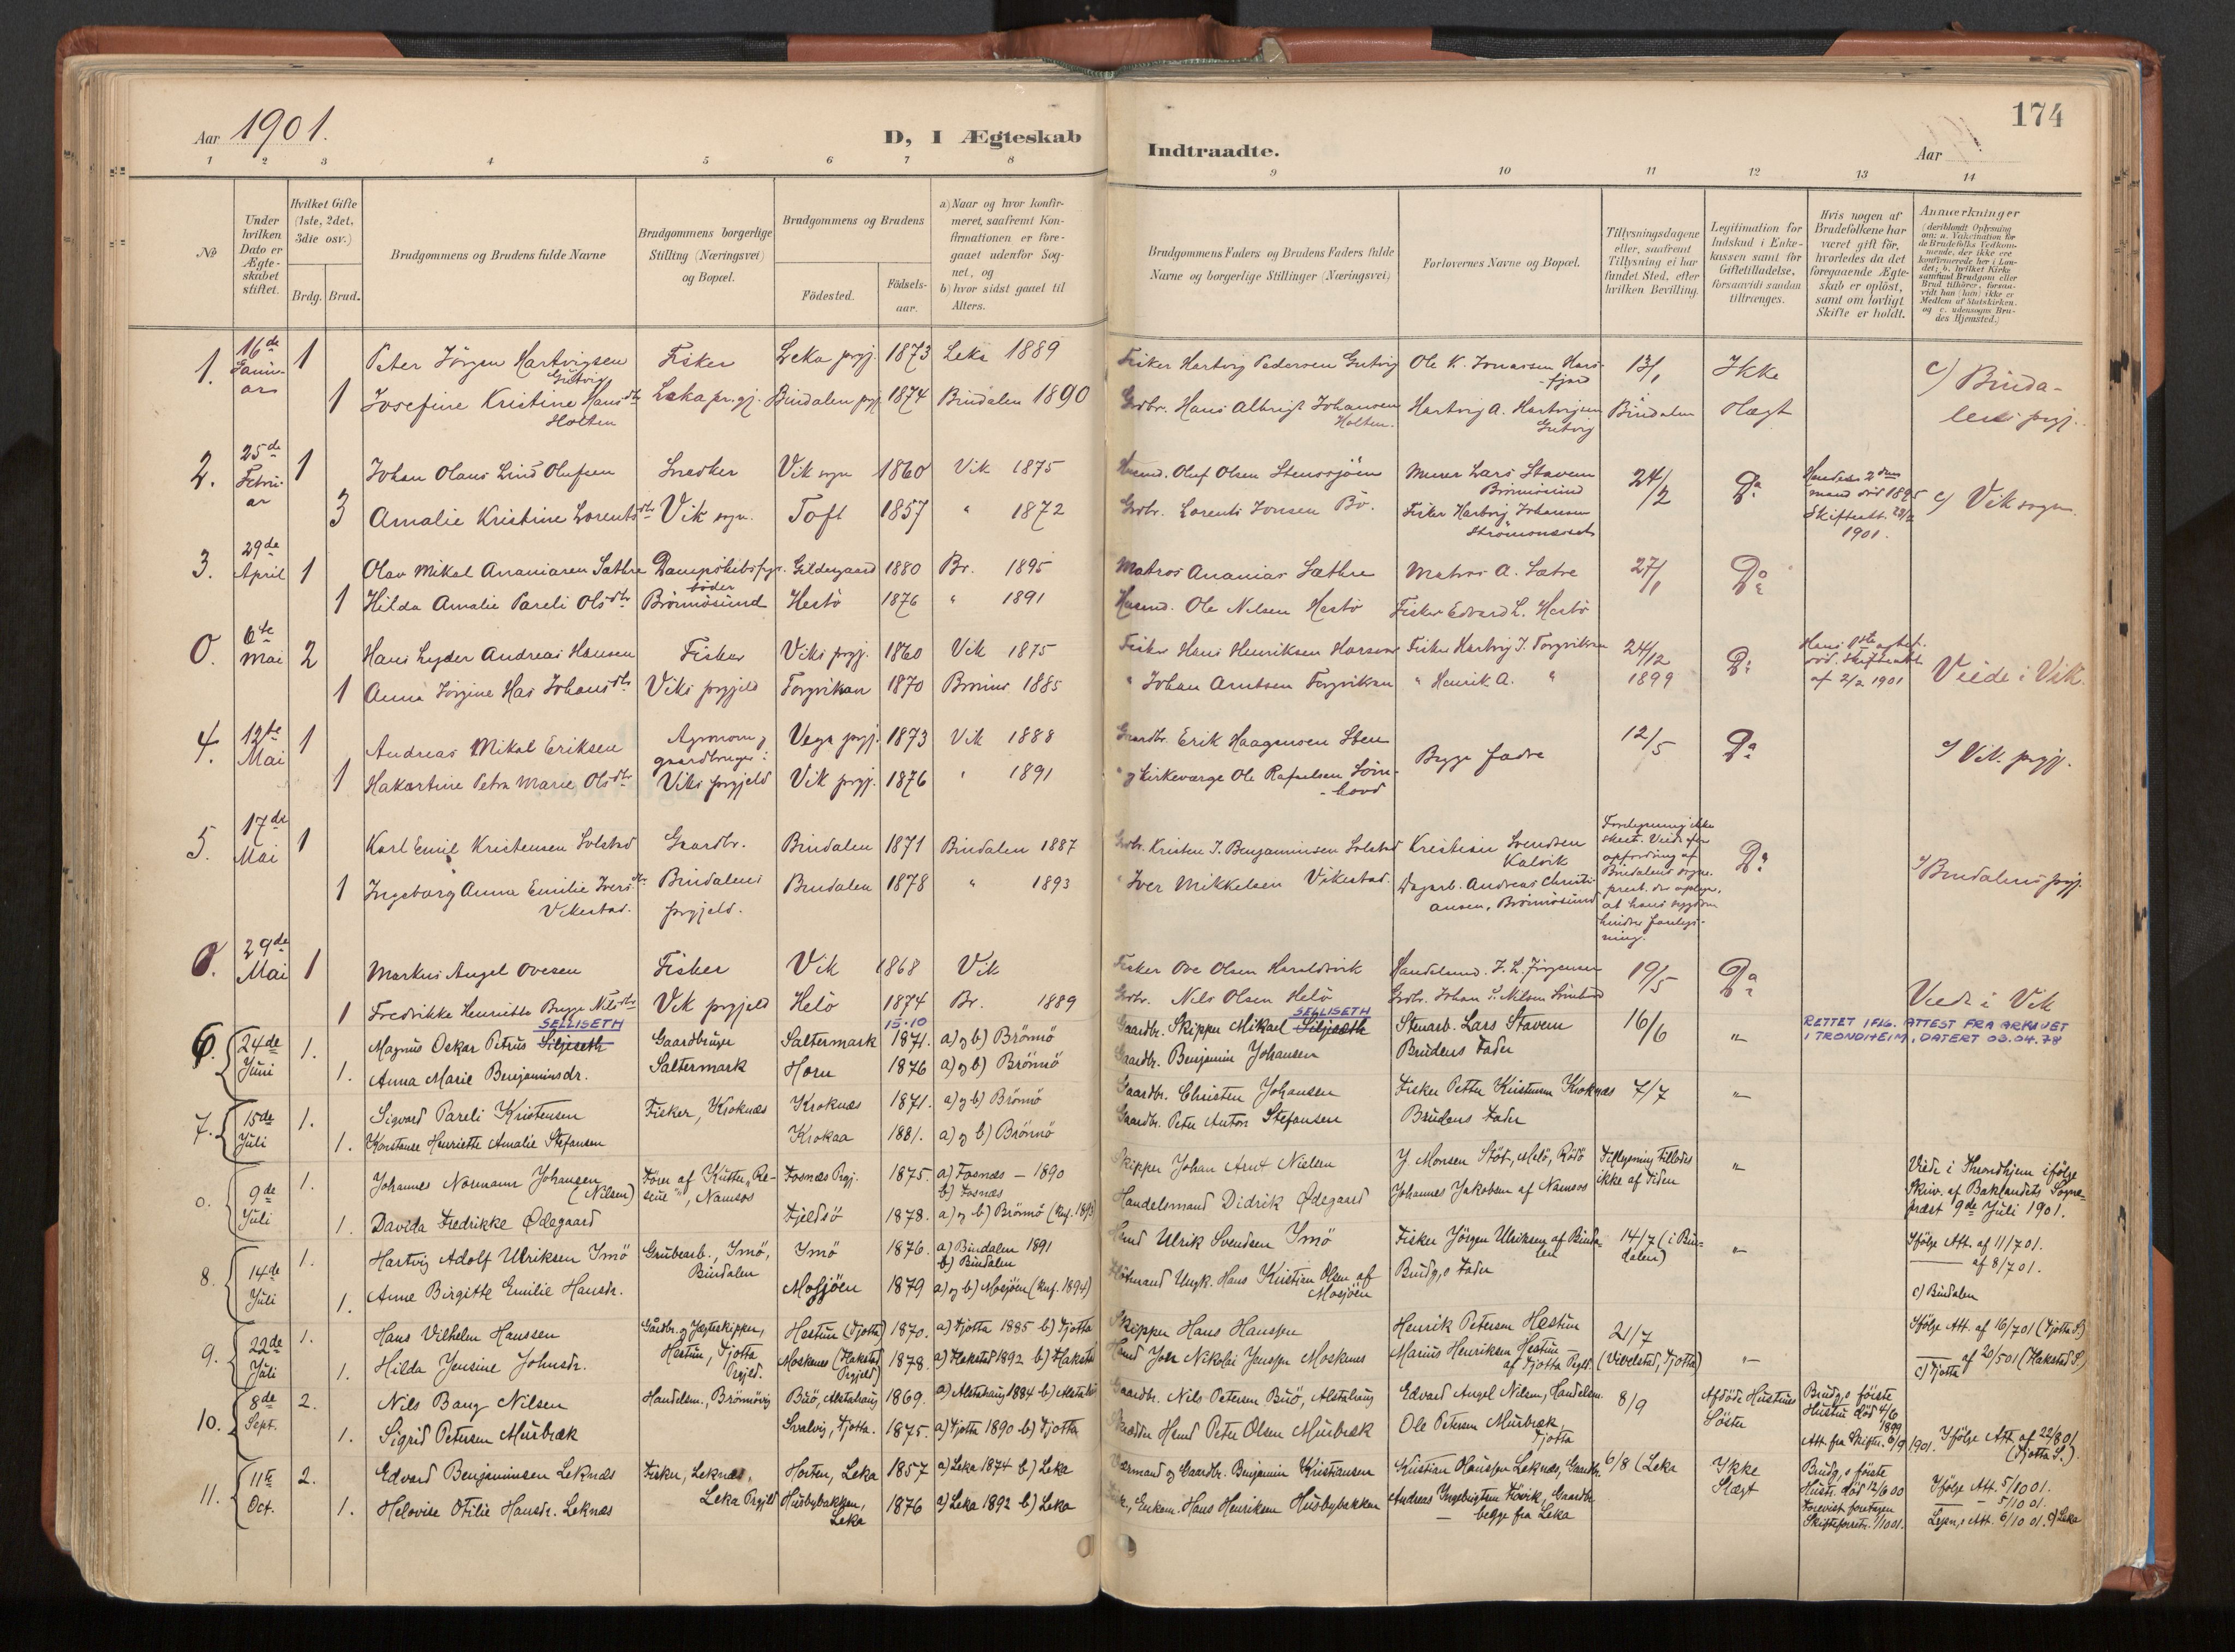 174
Aar 1901.
D, I Ægteskab
Indtraadte.
Aar
1 2 3 4 5 6 7 8
9 10 11 12 13 14
No
Under hvilken Dato er Ægteskabet stiftet.
Hvilket Gifte (1ste, 2det, 3die osv.)
Brdg. Brud.
Brudgommens og Brudens fulde Navne
Brudgommens borgerlige Stilling (Næringsvei) og Bopæl.
Brudgommens og Brudens
Födested.
Födsels-aar.
a) Naar og hvor konfirmeret, saafremt Konfirmationen er foregaaet udenfor Sognet, og
b) hvor sidst gaaet til Alters.
Brudgommens Faders og Brudens Faders fulde Navne og borgerlige Stillinger (Næringsvei)
Forlovernes Navne og Bopæl.
Tillysningsdagene eller, saafremt Tillysning ei har fundet Sted, efter hvilken Bevilling.
Legitimation for Indskud i Enkekassen samt for Giftetilladelse, forsaavidt saadan tiltrænges.
Hvis nogen af Brudefolkene har været gift för, hvorledes da det foregaaende Ægteskab er oplöst, samt om lovligt Skifte er holdt.
Anmerkninger
1. 16de Januar 1 Peter Jörgen Hartvigsen Gutvig Fisker Leka prgj. 1873 Leka 1889 Fisker Hartvig Pedersen Gutvig Ole K. Jonassen Horsfjord 13/1 Ikke c) Bindalens prgj.
1 Josefine Kristine Hansdtr Holten Leka pr.gj. Bindalen prgj. 1874 Bindalen 1890 Grdbr. Hans Albrigt Johansen Holten. Hartvig A. Hartvigsen Gutvig Bindalen Slægt
2. 25de Februar 1 Johan Olaus Lind Olufsen Snedker Vik sogn 1860 Vik 1875 Husmd. Oluf Olsen Stenssjöen Murer Lars Stavem Brönnösund 24/2 Do Hendes 2den mand död 1895 Skifteatt. 23/2 1901. c) Vik sogn
3 Amalie Kristine Lorentsdtr Vik sogn. Toft 1857 " 1872 Grdbr. Lorents Jonsen Bö. Fisker Hartvig Johansen Strömsnæset
3. 29de April 1 Olav Mikal Ananiasen Sæthre Gildegaard 1880 Br. 1895 Matros Ananias Sæthre Matros A. Sætre 27/1 Do
1 Hilda Amalie Pareli Olsdtr Brönnösund Hestö 1876 " 1891 Husmd. Ole Nilsen Hestö Fisker Edvard L. Hestö
0. 6te Mai 2 Hans Lyder Andreas Hansen Fisker Viks prgj. 1860 Vik 1875 Fisker Hans Henriksen Fisker Hartvig J. Torgvikan 24/12 1899 Do af 2/2 1901 Viede i Vik.
1 Anna Jörgine Has Johansdtr Viks prgjeld Torgvikan 1870 1885 " Johan Arntsen Torgvikan " Henrik A. "
4. 12te Mai 1 Andreas Mikal Eriksen Agronom og gaardbruger. Vega prgj. 1873 Vik 1888 Gaardbr. Erik Haagensen Sten Begge fædre 12/5 Do c) Vik. prgj.
1 Hakartine Petra Marie Olsdtr Viks prgjeld Vik prgj. 1876 " 1891 " og kirkeværge Ole Rafaelsen
5. 17de Mai 1 Karl Emil Kristensen Solstad Gaardbr. Bindalen 1871 Bindalen 1887 Grdbr. Kristen J. Benjaminsen Solstad Kristian Svendsen Kalvik Do c) Bindalens prgj.
1 Ingeborg Anna Emilie Iversdtr Vikestad. Bindalens prgjeld. Bindalen 1878 " 1893 " Iver Mikkelsen Vikestad. Dagarb. Andreas Christiansen, Brönnösund
0. 29de Mai 1 Markus Angel Ovesen Fisker Vik 1868 Vik Fisker Ove Olsen Haraldsvik Handelsmd. J. L. Jörgensen 19/5 Do Viede i Vik
1 Fredrikke Henriette Bugge Nilsdtr Vik prgjeld Helö 1874 Br. 1889 Grdbr. Nils Olsen Helö
6. 24de Juni 1. Magnus Oskar Petrus Siljeseth SELLISETH Gaardbruger 15.10 Saltermark 1871. a) og b) Brönnö Gaardbr. Skipper Mikael Siljeseth SELLISETH Stenarb. Lars Stavem 16/6 " RETTET IFLG. ATTEST FRA ARKIVET I TRONDHEIM, DATERT 03.04.78
1. Anna Marie Benjaminsdr. Saltermark Horn 1876 a) og b) Brönnö Gaardbr. Benjamin Johansen Brudens Fader
7. 15de Juli 1. Sigvard Pareli Kristensen Fisker, Kroknæs Kroknæs 1871. a) og b) Brönnö Gaardbr. Christen Johansen Fisker Petter Kristensen Kroknæs 7/7 "
1. Konstanse Henriette Amalie Stefansen Krokaa 1881. a) og b) Brönnö Gaardbr. Peter Anton Stefansen Brudens Fader
0. 9de Juli 1. Johannes Normann Johansen (Nilsen) Förer af Kutter "Rescue", Namsos Fosnæs Prgj. 1875. a) Fosnæs - 1890 b) Fosnæs Skipper Johan Arnt Nielsen J. Monsen Stöt, Melö, Rödö Tillysning tillodes ikke af Tiden " Viede i Throndhjem ifölge Skriv. af Baklandets Sognepræst 9de Juli 1901.
1. Davida Fredrikke Ødegaard Fjeldsö 1878. a) og b) Brönnö Handelsmand Didrik Ødegaard Johannes Jakobsen af Namsos
8. 14de Juli 1. Hartvig Adolf Ulriksen Imö Grubearb., Imö, Bindalen Imö 1876. a) Bindalen 1891 b) Bindalen Hmd Ulrik Svendsen Imö Fisker Jörgen Ulriksen af Bindalen 14/7 (i Bindalen) " Ifölge Att. af 11/7 01. af 8/7 01.
1. Anne Birgitte Emilie Hansdr. Mosjöen 1879 a) og b) Mosjöen (Knf. 1894) Hans Kristian Olsen af Mosjöen Brudg.s Fader c) Bindalen
9. 22de Juli 1. Hans Vilhelm Hanssen Gårdbr. og Jægteskipper, Hestun, Tjotta Prgjeld. Hestun (Tjotta) 1870. a) Tjotta 1885 b) Tjotta Skipper Hans Hanssen Henrik Petersen Hestun 21/7 (Vivelstad, Tjotta) " Ifölge Att. af 16/7 01 (Tjotta S.)
1. Hilda Jensine Johnsdr. Moskenes (Hakstad Prgjeld) 1878. a) Hakstad 1892 b) Hakstad Hmd John Nikolai Jenssen Moskenes Marius Henriksen Hestun af Tjotta Prgjld. af 20/5 01 (Hakstad S.) c) Tjotta
10. 8de Sept. 2. Nils Bang Nilsen Handelsm., Brönnövig Buö, Alstahaug 1869. a) Alstahaug 1884 b) Alstahaug Gaardbr. Nils Petersen Buö, Alstahaug Edvard Angel Nilsen, Handelsm. 8/9 Afdöde Hustrues Söster Brudg.s förste Hustru död 4/6 1899 Att. fra Skifter. 6/9 1901. Ifölge Att. af 22/8 01 (Tjotta S.)
1. Sigrid Petersen Murbræk Svalvig, Tjotta. 1875. a) Tjotta 1890 b) Tjotta Hmd Peter Olsen Murbræk Ole Petersen Murbræk, Tjotta
11. 11te Oct. 2. Edvard Benjaminsen Leknæs Fisker, Leknæs, Leka Prgjld Horten, Leka 1857 a) Leka 1874 b) Leka Gaardbr. Benjamin Kristiansen Kristian Olaussen Leknæs, Gaardbr. 6/8 (Leka Ikke Slægt Brudg.s förste Hustr. död 12/6 00 Ifölge Att. 5/10 01.
1. Helovise Otilie Hansdr. Leknæs Husbybakken, Leka 1876 a) Leka 1892 b) Leka Hans Henriksen Husbybakken Andreas Ingebrigtsen Gaardbr. begge fra Leka 5/10 01. Att. 6/10 01. c) Leka